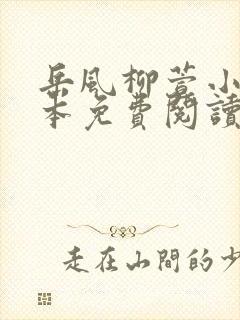 岳風柳萱小
本免費閱讀
走在山間的少